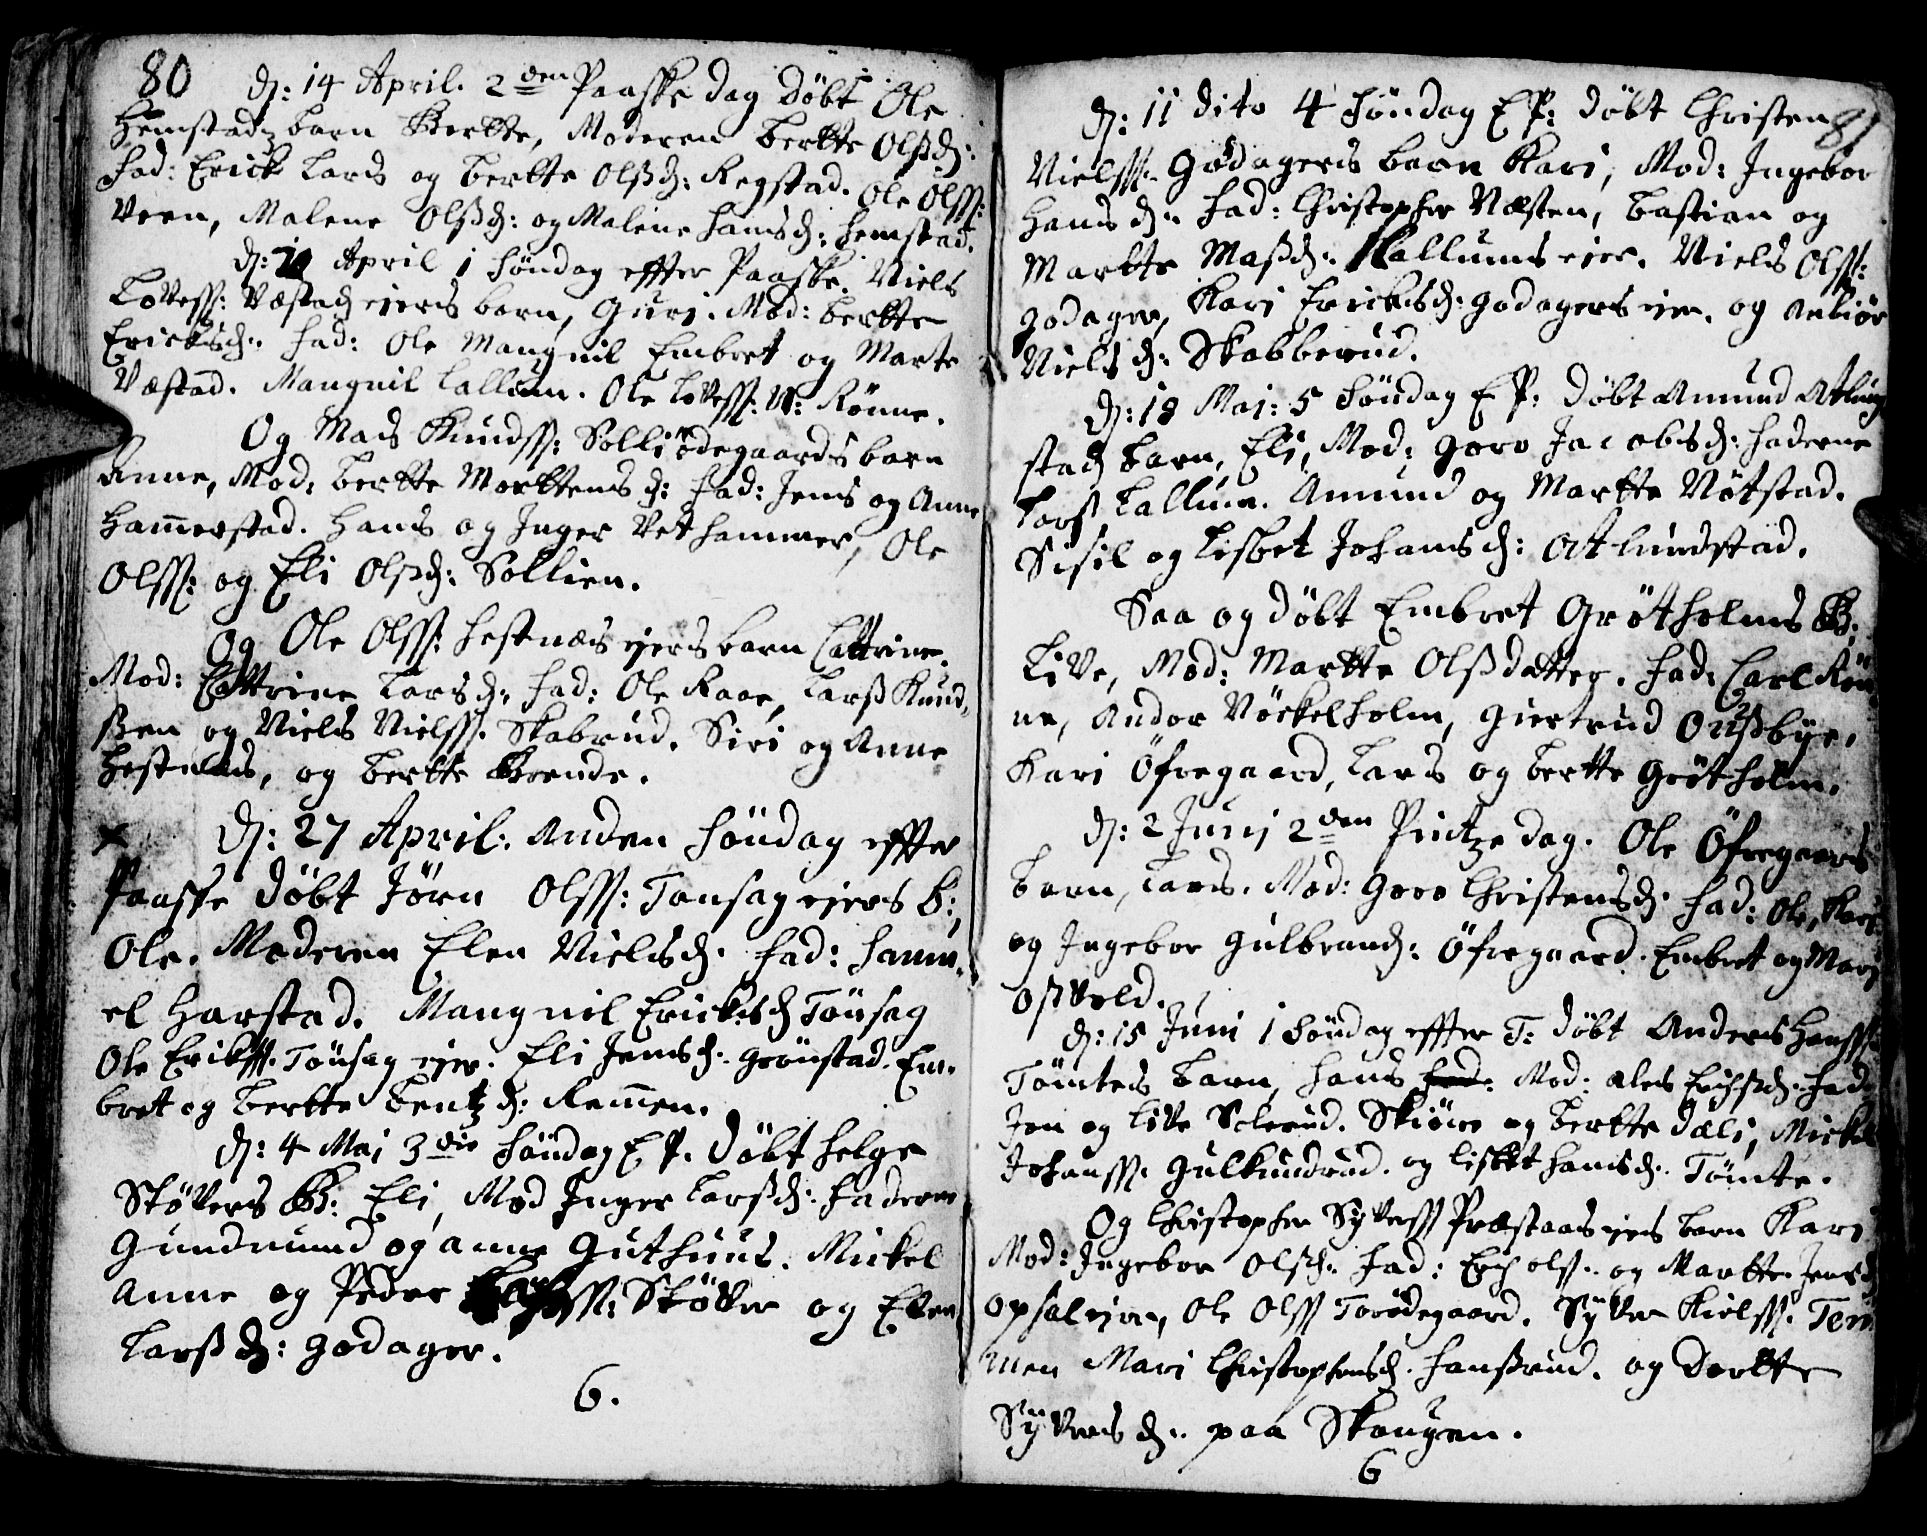 80
dj: 14 April. 2den Paaske dag döbt Ole
Hemstadz barn Bertte, Moderen bertte Olßdj:
fad: Erick Lars og bertte Olßdj: Regstad. Ole Olss:
Veen, Malene Olßdj: og Malene hansdj: hemstad.
dj: April 1 Söndag effter Paaske. Niels
Lovess: Væstad ejers barn, Guri. Mod: bertte
Ericksdj: fad: Ole Mangnil Embret og Marte
Væstad. Mangnil Lallum. Ole Lovess: N: Rönne.
Og Mads Knudss: Solliödegaards barn
Anne, Mod: bertte Morttensdj: fad: Jens og Anne
Hamerstad. Hans og Inger Vethammer, Ole
Olss: og Eli Olßdj: Sollien.
Og Ole Olss: hestnæs ejers barn Cattrine.
Mod: Cattrine Larsdj: fad: Ole Raae, Larß Knud-
ßen og Niels Nielss. Skabrud. Siri og Anne
hestnæs, og bertte Brende.
x dj: 27 April: Anden Söndag effter
Paaske döbt Jörn Olss: Tonsag ejers b:
Ole. Moderen Elen Nielsdj. fad: Samu-
el Harstad. Mangnil Ericksdj Tönsag
Ole Erikss. Tönsag ejer. Eli Jensdj. Grönstad. Em-
bret og bertte bentzdj: Remmen.
dj: 4 Maj 3die Söndag E P. döbt helge
Stövers B: Eli, Mod Inger Larßdj: faderne
Gundmund og anne Guthuus. Mickel
Anne og Peder Larss: Stöver og Elen
Larßdj: Godager.
6.
81
dj: 11 dito 4 Söndag E P: döbt Christen
Nielss. Godagers barn Kari, Mod: Ingebor
Hansdj. fad: Christopher Næsten, bastian og
Martte Maßdj. Kallums ejer. Niels Olss:
Godager, Kari Ericksdj: Godagers ejer. og Anliör
Nielsdj: Skabberud.
dj: 18 Maj: 5 Söndag E P: döbt Amund Atlung
stadj barn, Eli, Mod: Goro Jacobsdj: faderne
Larß Lallum. Amund og Martte Nötstad.
Sisil og Lisbet Johansdj: Atlundstad.
Saa og döbt Embret Grötholms B:
Live, Mod: Martte Olßdatter. fad: Carl Rön
ne, Andor Nöckelholm, Giertrud Oußbye.
Kari Öfregaard, Lars og bertte Grötholm.
dj: 2 Junj 2den Pintze dag. Ole Öfregaards
barn, Lars. Mod: Goro Christensdj. fad: Ole, Kari
og Ingebor Gulbrandj: Öfregaard. Embret og Mari
Opvold.
dj: 15 Juni 1 Söndag effter T: döbt Anders Hanss:
Tömtes barn, Hans Mod: Ales Erichsdj. fad:
Jon og Live Selerud. Skiöre og bertte Dæli, Mickel
Johanss. Gulkundrud. og lisbet hansdj. Tömte.
Og Christopher Syverss Præstaas ejers barn Kari
Mod: Ingebor Olsdj. fad: Erich ols. og Martte Jensdj.
Opsal ejer, Ole Olss Torödegaard. Syver Kielss. Tem
men Mari Christophersdj. Hanßrud. og Dortte
Syversdj. paa Skougen.
6